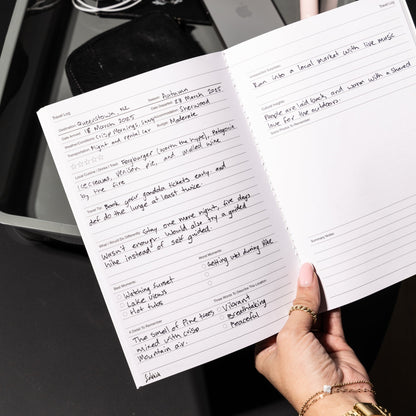 Travel Log
Destination: Queenstown NZ
Season: Autumn
Date Arrived: 18 March 2025
Date Departed: 28 March 2025
Weather Conditions: Crisp mornings,
Sherwood
Transportation: Flight and rental car
Budget: Moderate
Local Cuisine / Drinks I Tried: Fergburger (worth the hype), Patagonia
ice cream, venison pie, and mulled wine
by the fire
Travel Tip: Book your gondola tickets early, and
def do the luge at least twice.
What I Would Do Differently: Stay one more night, five days
wasn't enough. Would also try a guided
hike instead of self guided.
Best Moments:
Watching sunset
Lake views
Hot tubs
Worst Moments:
Getting wet during hike
Three Words To Describe This Location:
Vibrant
Breathtaking
Peaceful
The smell of Pine trees
mixed with crisp
Mountain air.
Travel Log
Ran into a local market with live music
Cultural Insights:
People are laid back and warm with a shared
love for the outdoors.
Summary Notes: